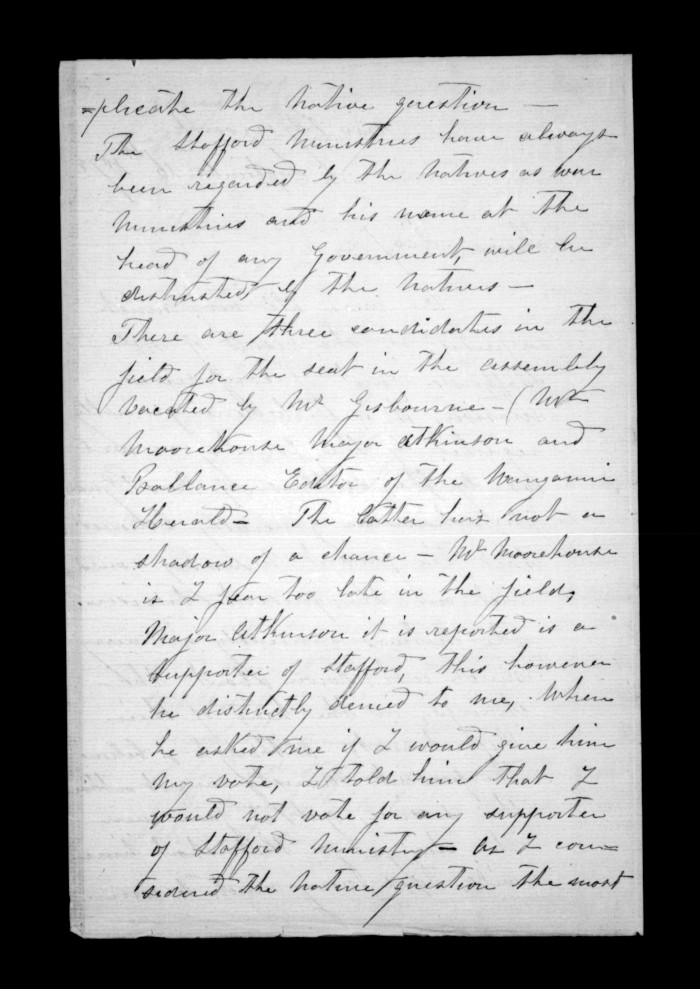 =plicate the Native question —
The Stafford Ministries have always
been regarded by the Natives as war
Ministries and his name at the
head of any Government, will be
distrusted, by the Natives —
There are three candidates in the
field for the seat in the assembly
vacated by Mr Gisbourne — (Mr
Moorehouse Major Atkinson and
Ballance Editor of the Wanganui
Herald — The latter has not a
shadow of a chance — Mr Moorehouse
is I fear too late in the field,
Major Atkinson it is reported is a
supporter of Stafford, this however
he distinctly denied to me, When
he asked me if I would give him
my vote, I told him that I
would not vote for any supporter
of Stafford Ministry — as I con=
sidered the Native question the most